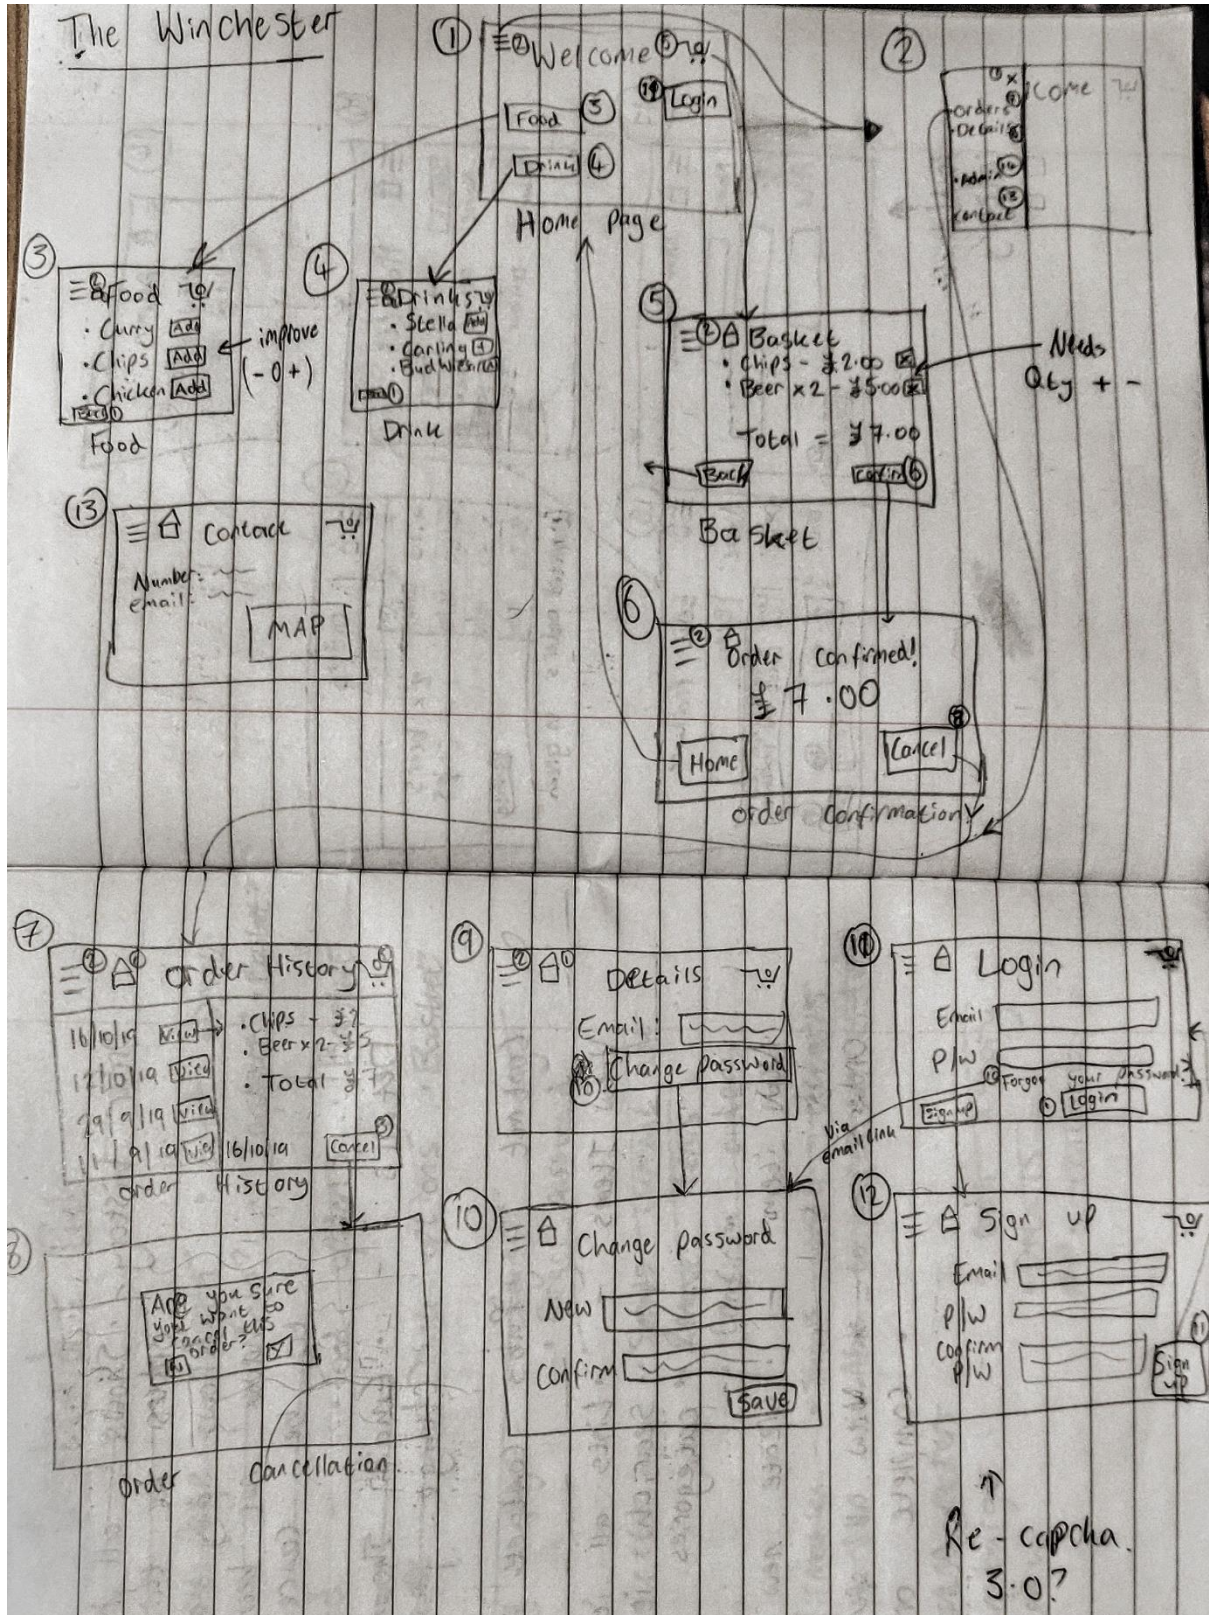 The Winchester
1
2 Welcome 5
11 Login
Food 3
Drink 4
Home Page
2
x
come
Orders
Details
Admin 14
Contact 13
3
Food
Curry Add
Chips Add
Chicken Add
Food
improve
(- 0 +)
4
Drinks
Stella Add
Carling +
1
Drink
5
2 Basket
Chips - £2.00 x
Beer x 2 - £5.00 x
Total = £7.00
Back Confirm 6
Basket
Needs
Qty + -
13
Contact
Number:
email:
MAP
6
2
Order Confirmed!
£7.00
8
Home Cancel
order Confirmation
7
2 1 Order History
16/10/19 View
12/10/19 View
29/9/19 View
11/9/19
Chips - £2
Beer x 2 - £5
Total £7
16/10/19 Cancel 8
order History
8
Are you sure
you want to
cancel this
order?
order Cancellation
9
2 1
Details
Email:
10 Change password
10
Change password
New
Confirm
Save
11
Login
Email
P/W
Forgot your password?
Sign up 1 Login
Via
email link
12
Sign up
Email
P/W
Confirm
P/W
11
Sign
up
Re-capcha.
3.0?